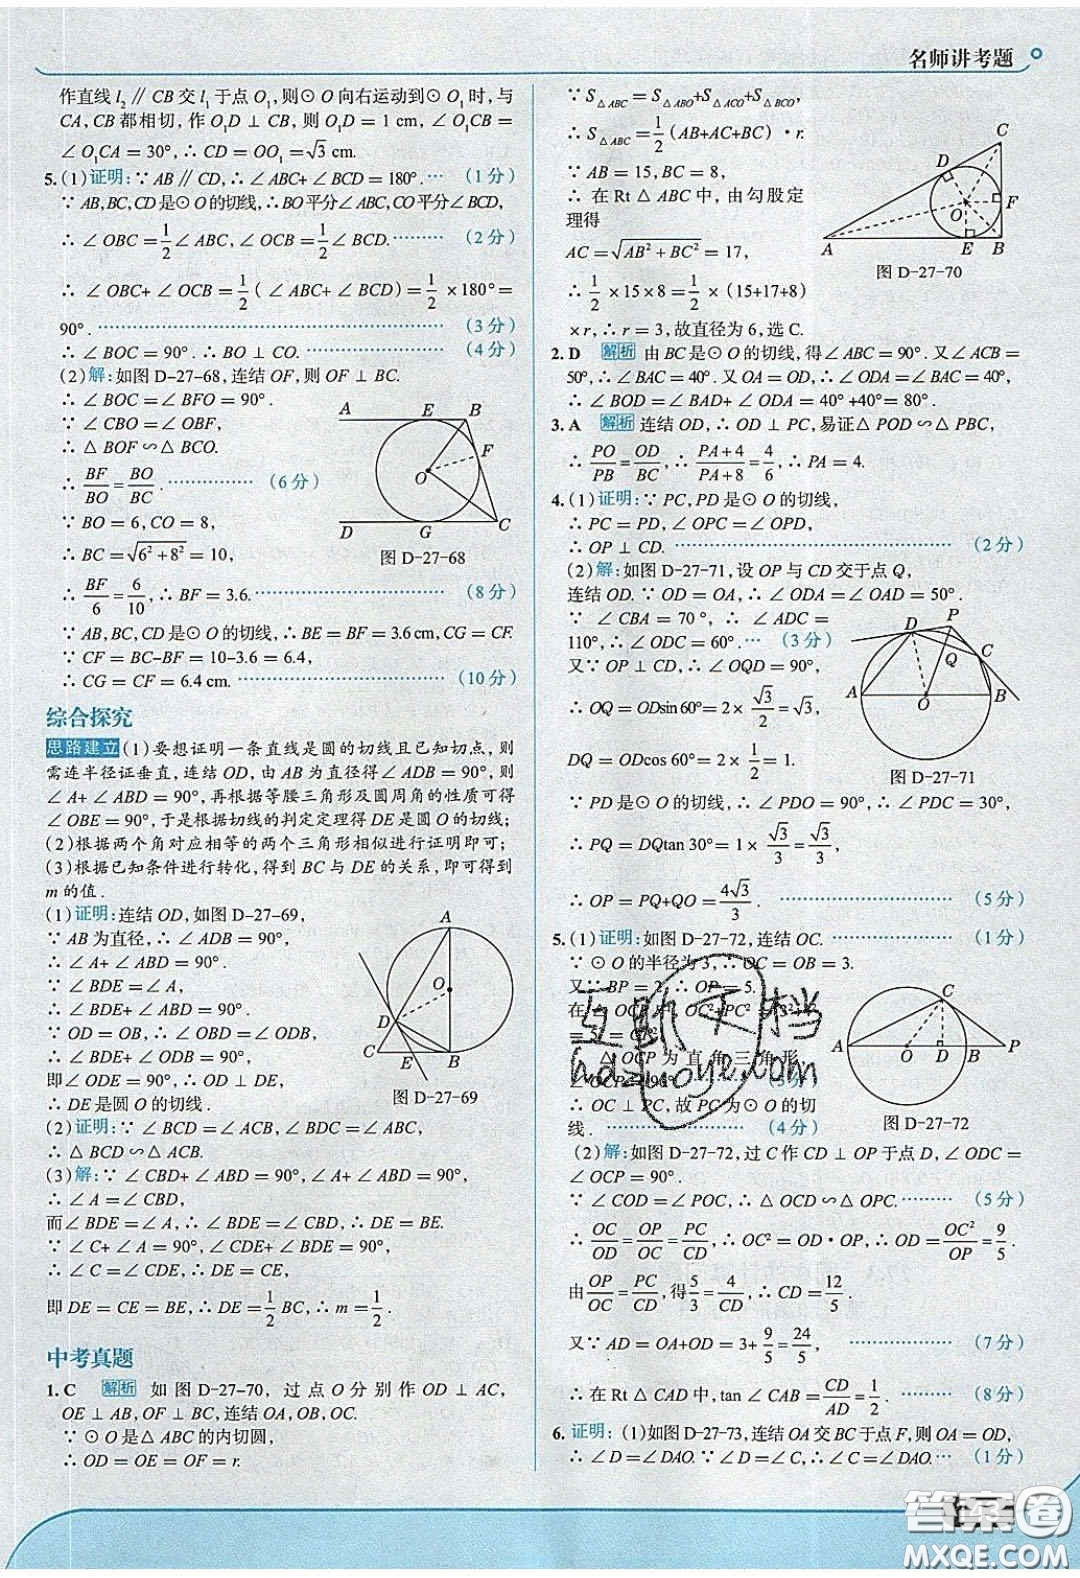 名师讲考题
作直线 l₂ ∥ CB 交 l₁ 于点 O₁,则⊙ O 向右运动到⊙ O₁ 时,与
CA, CB 都相切, 作 O₁D ⊥ CB, 则 O₁D = 1 cm, ∠ O₁CB =
∠ O₁CA = 30°, ∴ CD = OO₁ = √3 cm.
5. (1)证明:∵ AB ∥ CD, ∴ ∠ ABC+ ∠ BCD = 180°. … (1 分)
∵ AB, BC, CD 是⊙ O 的切线, ∴ BO 平分∠ ABC, CO 平分∠ BCD,
∴ ∠ OBC = 1/2 ∠ ABC, ∠ OCB = 1/2 ∠ BCD. ……… (2 分)
∴ ∠ OBC+ ∠ OCB = 1/2 (∠ ABC+ ∠ BCD) = 1/2 ×180° =
90°. ……………………………… (3 分)
∴ ∠ BOC = 90°. ∴ BO ⊥ CO. ……………… (4 分)
(2)解:如图 D-27-68, 连结 OF, 则 OF ⊥ BC.
∴ ∠ BOC = ∠ BFO = 90°.
∵ ∠ CBO = ∠ OBF,
∴ △ BOF ∽ △ BCO.
∴ BF/BO = BO/BC. …………… (6 分)
∵ BO = 6, CO = 8,
∴ BC = √(6²+8²) = 10,
∴ BF/6 = 6/10, ∴ BF = 3.6. ……………… (8 分)
A E B F O D G C
图 D-27-68
∵ AB, BC, CD 是⊙ O 的切线, ∴ BE = BF = 3.6 cm, CG = CF.
∵ CF = BC-BF = 10-3.6 = 6.4,
∴ CG = CF = 6.4 cm. ……………… (10 分)
综合探究
思路建立 (1)要想证明一条直线是圆的切线且已知切点, 则
需连半径证垂直, 连结 OD, 由 AB 为直径得∠ ADB = 90°, 则
∠ A+ ∠ ABD = 90°, 再根据等腰三角形及圆周角的性质可得
∠ OBE = 90°, 于是根据切线的判定定理得 DE 是圆 O 的切线;
(2)根据两个角对应相等的两个三角形相似进行证明即可;
(3)根据已知条件进行转化, 得到 BC 与 DE 的关系, 即可得到
m 的值.
(1)证明:连结 OD, 如图 D-27-69,
∵ AB 为直径, ∴ ∠ ADB = 90°,
∴ ∠ A+ ∠ ABD = 90°.
∵ ∠ BDE = ∠ A,
∴ ∠ BDE+ ∠ ABD = 90°.
∵ OD = OB, ∴ ∠ OBD = ∠ ODB,
∴ ∠ BDE+ ∠ ODB = 90°.
即∠ ODE = 90°, ∴ OD ⊥ DE,
∴ DE 是圆 O 的切线.
A O D C E B
图 D-27-69
(2)证明:∵ ∠ BCD = ∠ ACB, ∠ BDC = ∠ ABC,
∴ △ BCD ∽ △ ACB.
(3)解:∵ ∠ CBD+ ∠ ABD = 90°, ∠ A+ ∠ ABD = 90°,
∴ ∠ A = ∠ CBD,
而∠ BDE = ∠ A, ∴ ∠ BDE = ∠ CBD, ∴ DE = BE.
∵ ∠ C+ ∠ A = 90°, ∠ CDE+ ∠ BDE = 90°,
∴ ∠ C = ∠ CDE, ∴ DE = CE,
即 DE = CE = BE, ∴ DE = 1/2 BC, ∴ m = 1/2.
中考真题
1. C 解析 如图 D-27-70, 过点 O 分别作 OD ⊥ AC,
OE ⊥ AB, OF ⊥ BC, 连结 OA, OB, OC.
∵ ⊙ O 是△ ABC 的内切圆,
∴ OD = OE = OF = r.
∵ S△ABC = S△ABO+S△ACO+S△BCO,
∴ S△ABC = 1/2 (AB+AC+BC) • r.
∵ AB = 15, BC = 8,
∴ 在 Rt △ ABC 中, 由勾股定
理得
AC = √(AB²+BC²) = 17,
∴ 1/2 ×15×8 = 1/2 × (15+17+8)
×r, ∴ r = 3, 故直径为 6, 选 C.
C D O F A E B
图 D-27-70
2. D 解析 由 BC 是⊙ O 的切线, 得∠ ABC = 90°. 又∠ ACB =
50°, ∴ ∠ BAC = 40°. 又 OA = OD, ∴ ∠ ODA = ∠ BAC = 40°,
∴ ∠ BOD = ∠ BAD+ ∠ ODA = 40° +40°= 80°.
3. A 解析 连结 OD, ∴ OD ⊥ PC, 易证△ POD ∽ △ PBC,
∴ PO/PB = OD/BC, ∴ (PA+4)/(PA+8) = 4/6, ∴ PA = 4.
4. (1)证明:∵ PC, PD 是⊙ O 的切线,
∴ PC = PD, ∠ OPC = ∠ OPD,
∴ OP ⊥ CD. ……………………………… (2 分)
(2)解:如图 D-27-71, 设 OP 与 CD 交于点 Q,
连结 OD. ∵ OD = OA, ∴ ∠ ODA = ∠ OAD = 50°.
∵ ∠ CBA = 70°, ∴ ∠ ADC =
110°, ∴ ∠ ODC = 60°. … (3 分)
又∵ OP ⊥ CD, ∴ ∠ OQD = 90°,
∴ OQ = ODsin 60°= 2× √3/2 = √3,
DQ = ODcos 60°= 2× 1/2 = 1.
P D C Q A O B
图 D-27-71
∵ PD 是⊙ O 的切线, ∴ ∠ PDO = 90°, ∴ ∠ PDC = 30°,
∴ PQ = DQtan 30°= 1× √3/3 = √3/3,
∴ OP = PQ+QO = 4√3/3. ……………… (5 分)
5. (1)证明:如图 D-27-72, 连结 OC. ……………… (1 分)
∵ ⊙ O 的半径为 3, ∴ OC = OB = 3.
又∵ BP = 2, ∴ OP = 5.
在△ OCP 中, OC²+PC² = 3²+
= 5² = OP²,
△ OCP 为直角三角形,
∠ OCP = 90°. (3 分)
∴ OC ⊥ PC, 故 PC 为⊙ O 的切
线. ……………… (4 分)
A O D B P C
图 D-27-72
(2)解:如图 D-27-72, 过 C 作 CD ⊥ OP 于点 D, ∠ ODC =
∠ OCP = 90°.
∵ ∠ COD = ∠ POC, ∴ △ OCD ∽ △ OPC. ……… (5 分)
∴ OC/OD = OP/OC = PC/CD, ∴ OC² = OD • OP, ∴ OD = OC²/OP = 9/5.
由 OP/OC = PC/CD, 得 5/3 = 4/CD, ∴ CD = 12/5.
又∵ AD = OA+OD = 3+ 9/5 = 24/5, ……………… (7 分)
∴ 在 Rt △ CAD 中, tan ∠ CAB = CD/AD = 1/2. ……… (8 分)
6. 证明:(1)如图 D-27-73, 连结 OA 交 BC 于点 F, 则 OA = OD,
∴ ∠ D = ∠ DAO. ∵ ∠ CAE = ∠ D, ∴ ∠ CAE = ∠ DAO. … (1 分)
互助文档
hdzuoye.com
答案卷
MXQE.COM